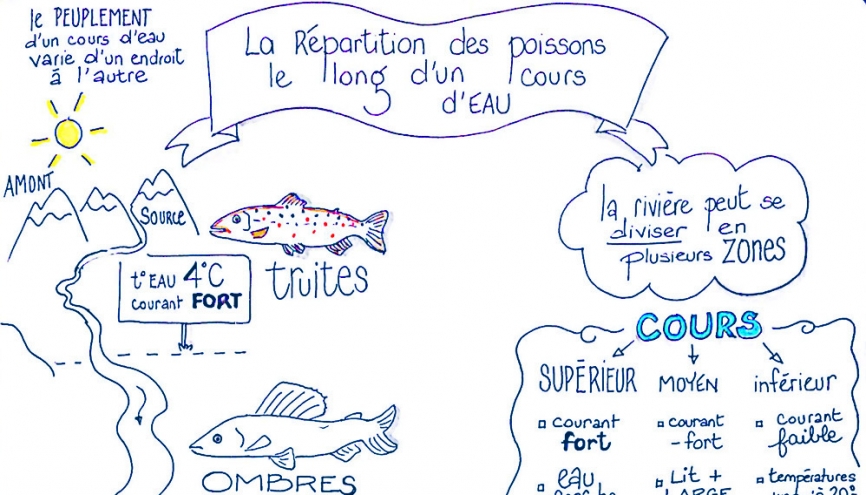 le PEUPLEMENT
d'un cours d'eau
varie d'un endroit
à l'autre
La Répartition des poissons
le long d'un cours
d'EAU
AMONT
SOURCE
t° EAU 4°C
courant FORT
truites
OMBRES
la rivière peut se
diviser en
plusieurs ZONES
COURS
SUPÉRIEUR
courant
fort
eau
MOYEN
courant
- fort
Lit +
LARGE
inférieur
courant
faible
températures